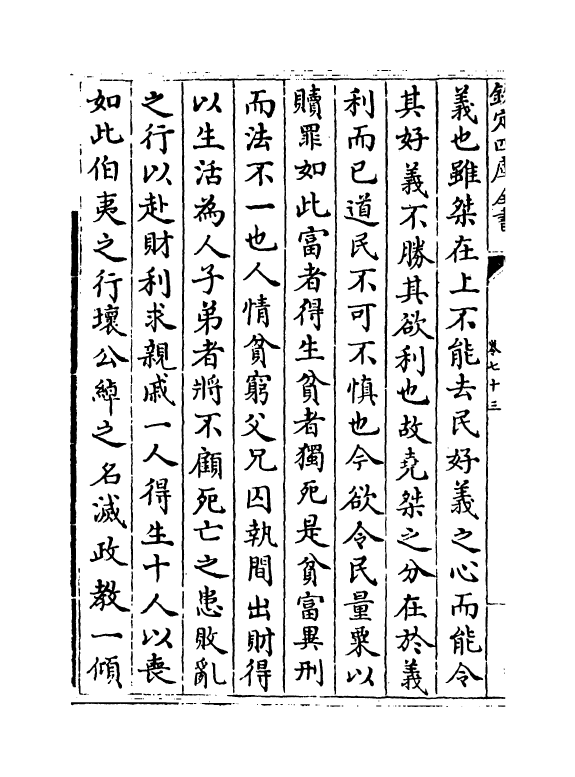 欽定四庫全書
卷七十三
義也雖桀在上不能去民好義之心而能令
其好義不勝其欲利也故堯桀之分在於義
利而已道民不可不慎也今欲令民量粟以
贖罪如此富者得生貧者獨死是貧富異刑
而法不一也人情貧窮父兄囚執聞出財得
以生活為人子弟者將不顧死亡之患敗亂
之行以赴財利求親戚一人得生十人以喪
如此伯夷之行壞公綽之名滅政教一傾